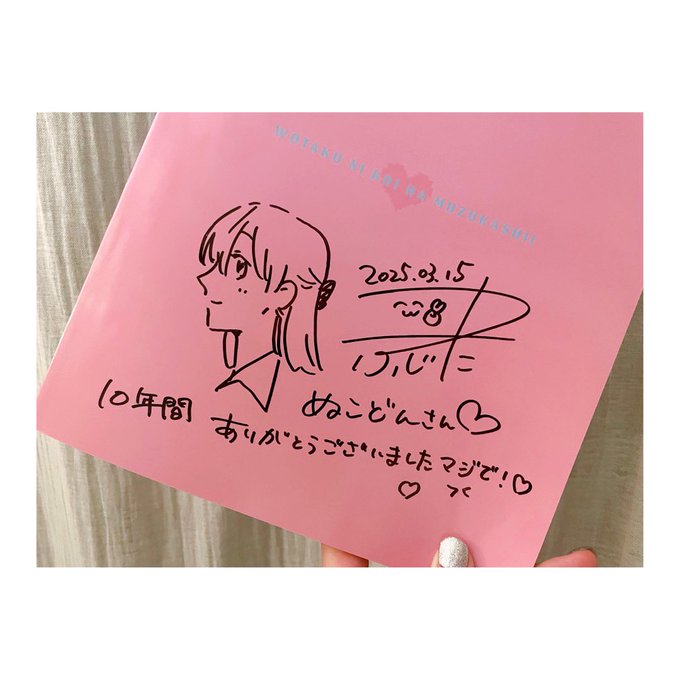 WOTAKU NI KOI WA MUZUKASHII
2025.03.15
ふじた
ぬこどんさん♡
10年間
ありがとうございましたマジで!♡
♡